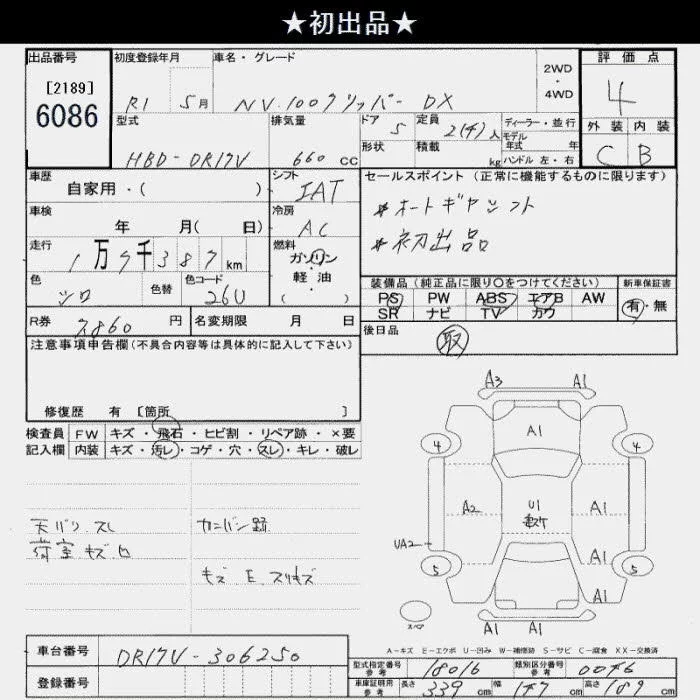 ★初出品★
出品番号 初度登録年月 車名・グレード 2WD・4WD 評価点
[2189]
6086
R1 5月 NV100クリッパー DX 4
型式 排気量 ドア 定員 ディーラー・並行 外装 内装
HBD-DR17V 660 CC 5 2(4)人 モデル年式 年 C B
形状 積載 kg ハンドル 左・右
車歴 シフト セールスポイント(正常に機能するものに限ります)
自家用・( ) IAT
*オートギヤシフト
車検 冷房
年 月( 日) AC
*初出品
走行 燃料
1万7千387km ガソリン・軽油
( )
色 色替 色コード 装備品(純正品に限り○をつけてください) 新車保証書
シロ 26U PS PW ABS エアB AW 有・無
SR ナビ TV カワ
R券 7860円 名変期限 月 日 後日品
取
注意事項申告欄(不具合内容等は具体的に記入して下さい)
修復歴 有 [箇所 ]
検査員 FW キズ・飛石・ヒビ割・リペア跡・×要
記入欄 内装 キズ・汚レ・コゲ・穴・スレ・キレ・破レ
天バリ スレ
荷室 キズ
カンバン跡
キズ E. スリキズ
A3 A1
4 A1 4
A2 U1 A1
UA2 A1
5 5
A1
スペア A1 A1
A-キズ E-エクボ U-凹み W-補修跡 S-サビ C-腐食 XX-交換済
車台番号 DR17V-306250
登録番号
型式指定番号 参考 18016 類別区分番号 参考 0046
車庫証明用 参考 長さ 339cm 幅 147cm 高さ 189cm